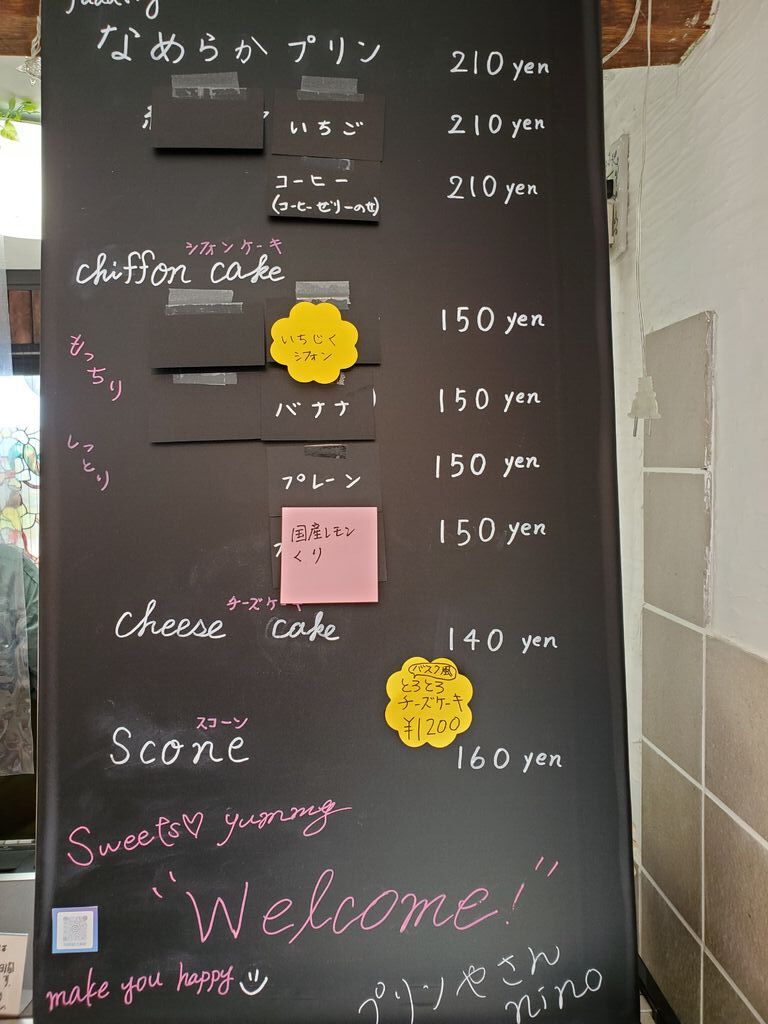 pudding
なめらか プリン 210 yen
いちご 210 yen
コーヒー 210 yen
(コーヒーゼリーのせ)
シフォンケーキ
chiffon cake
いちじく 150 yen
シフォン
もっちり
バナナ 150 yen
しっとり
プレーン 150 yen
国産レモン 150 yen
くり
チーズケーキ
cheese cake 140 yen
バスク風
とろとろ
チーズケーキ
¥1200
スコーン
Scone 160 yen
Sweets♡ yummy
"Welcome!"
make you happy
プリンやさん
nino